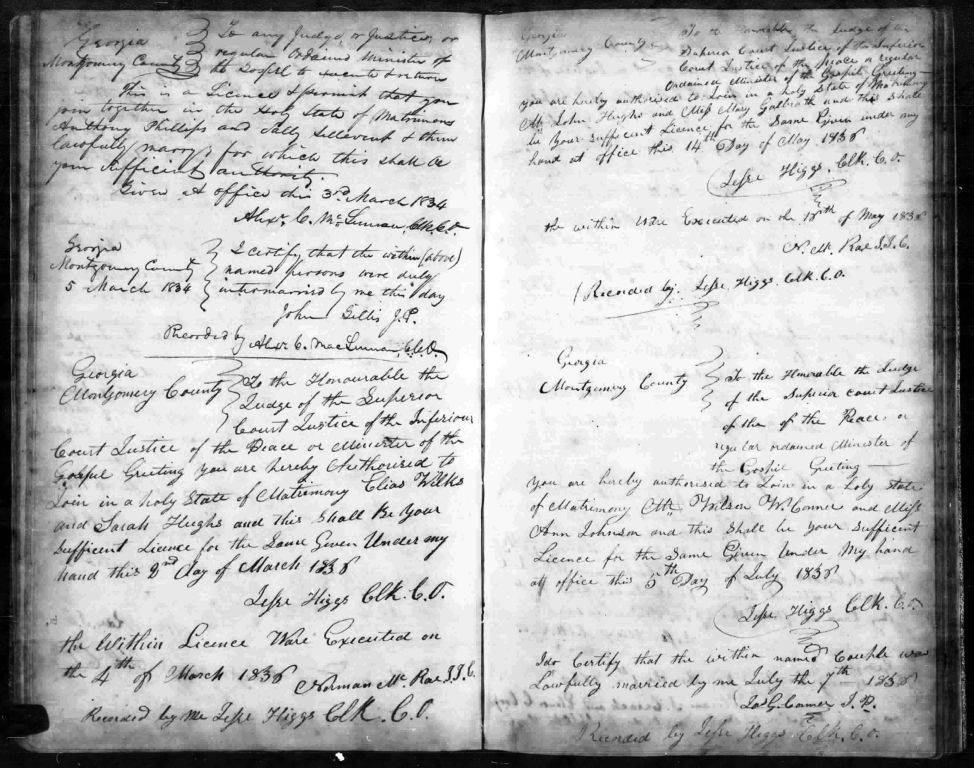 Georgia
Montgomery County
To any Judge, or Justice, or
regular Ordained Minister of
the Gospel to execute & return
This is a Licence & permit that you
join together in the Holy State of Matrimony
Anthony Phillips and Sally & them
lawfully marry, for which this shall be
your sufficient authority.
Given at office this 3rd March 1834
Alexr C. McLennan, Clk C.O.
Georgia
Montgomery County
5 March 1834
I certify that the within (above)
named persons were duly
intermarried by me this day
John Gillis J.P.
Recorded by Alexr C. MacLennan, C.C.O.
Georgia
Montgomery County
To the Honourable the
Judge of the Superior
Court Justice of the Inferiour
Court Justice of the Peace or Minister of the
Gospul Greeting you are hereby Authorised to
Join in a holy State of Matrimony Elias Wilks
and Sarah Hughs and this Shall Be your
Sufficent Licence for the Same Given Under my
hand this 2nd Day of March 1836
Jesse Higgs Clk. C.O.
the Within Licence Ware Executed on
the 4th of March 1836
Norman Mc Rae J.I.C.
Recorded by me Jesse Higgs Clk. C.O.
Georgia
Montgomery County
To the Honorable the Judge of the
Superior Court Justice of the Inferior
Court Justice of the peace a regular
Ordained Minister of the Gospile Greeting
you are hereby authorised to Join in a holy State of Matrimony
Mr John Hughs and Miss Mary Galbrath and this Shall
be Your Sufficent Licence for the Same Given under my
hand at office this 14th Day of May 1836
Jesse Higgs Clk. C.O.
the within Ware Executed on the of May 1836
N. Mc. Rae J.I.C.
Recorded by Jesse Higgs Clk. C.O.
Georgia
Montgomery County
To the Honorable the Judge
of the Superior court Justice
of the of the Peace or
regular ordained Minister of
the Gospil Greeting
You are hereby authorised to Join in a holy State
of Matrimony Mr Wilson W. Conner and Miss
Ann Johnson and this Shall be your Sufficent
Licence for the Same Given Under My hand
at office this 5th Day of July 1836
Jesse Higgs Clk. C.O.
I do Certify that the within named Couple was
Lawfully married by me July the 7th 1836
Jas G. Conner J.P.
Recorded by Jesse Higgs Clk. C.O.